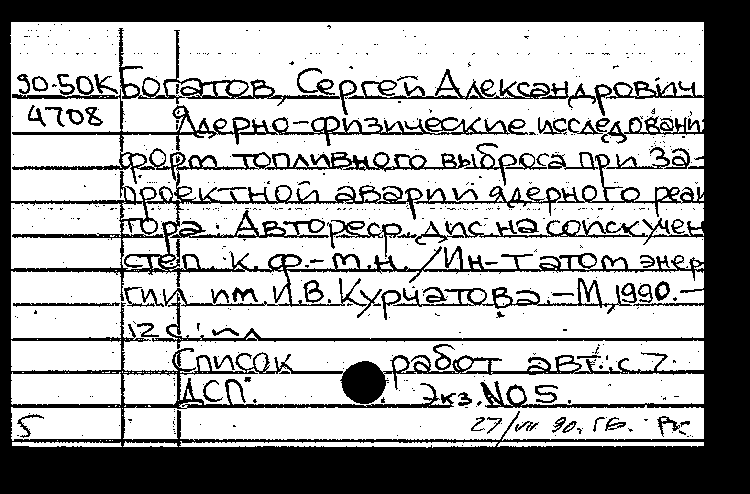 90-50К Богатов, Сергей Александрович
4708 Ядерно-физические исследовани
форм топливного выброса при за-
проектной аварии ядерного реак
тора. Автореф. дис. на соиск. учен
степ. к. ф.-м.н. /Ин-т атом энер
гии им. И.В. Курчатова.-М, 1990.-
12 с.: ил
Список работ авт.: с 7.
ДСП. Экз. №05.
5 27/VII 90. ГБ.